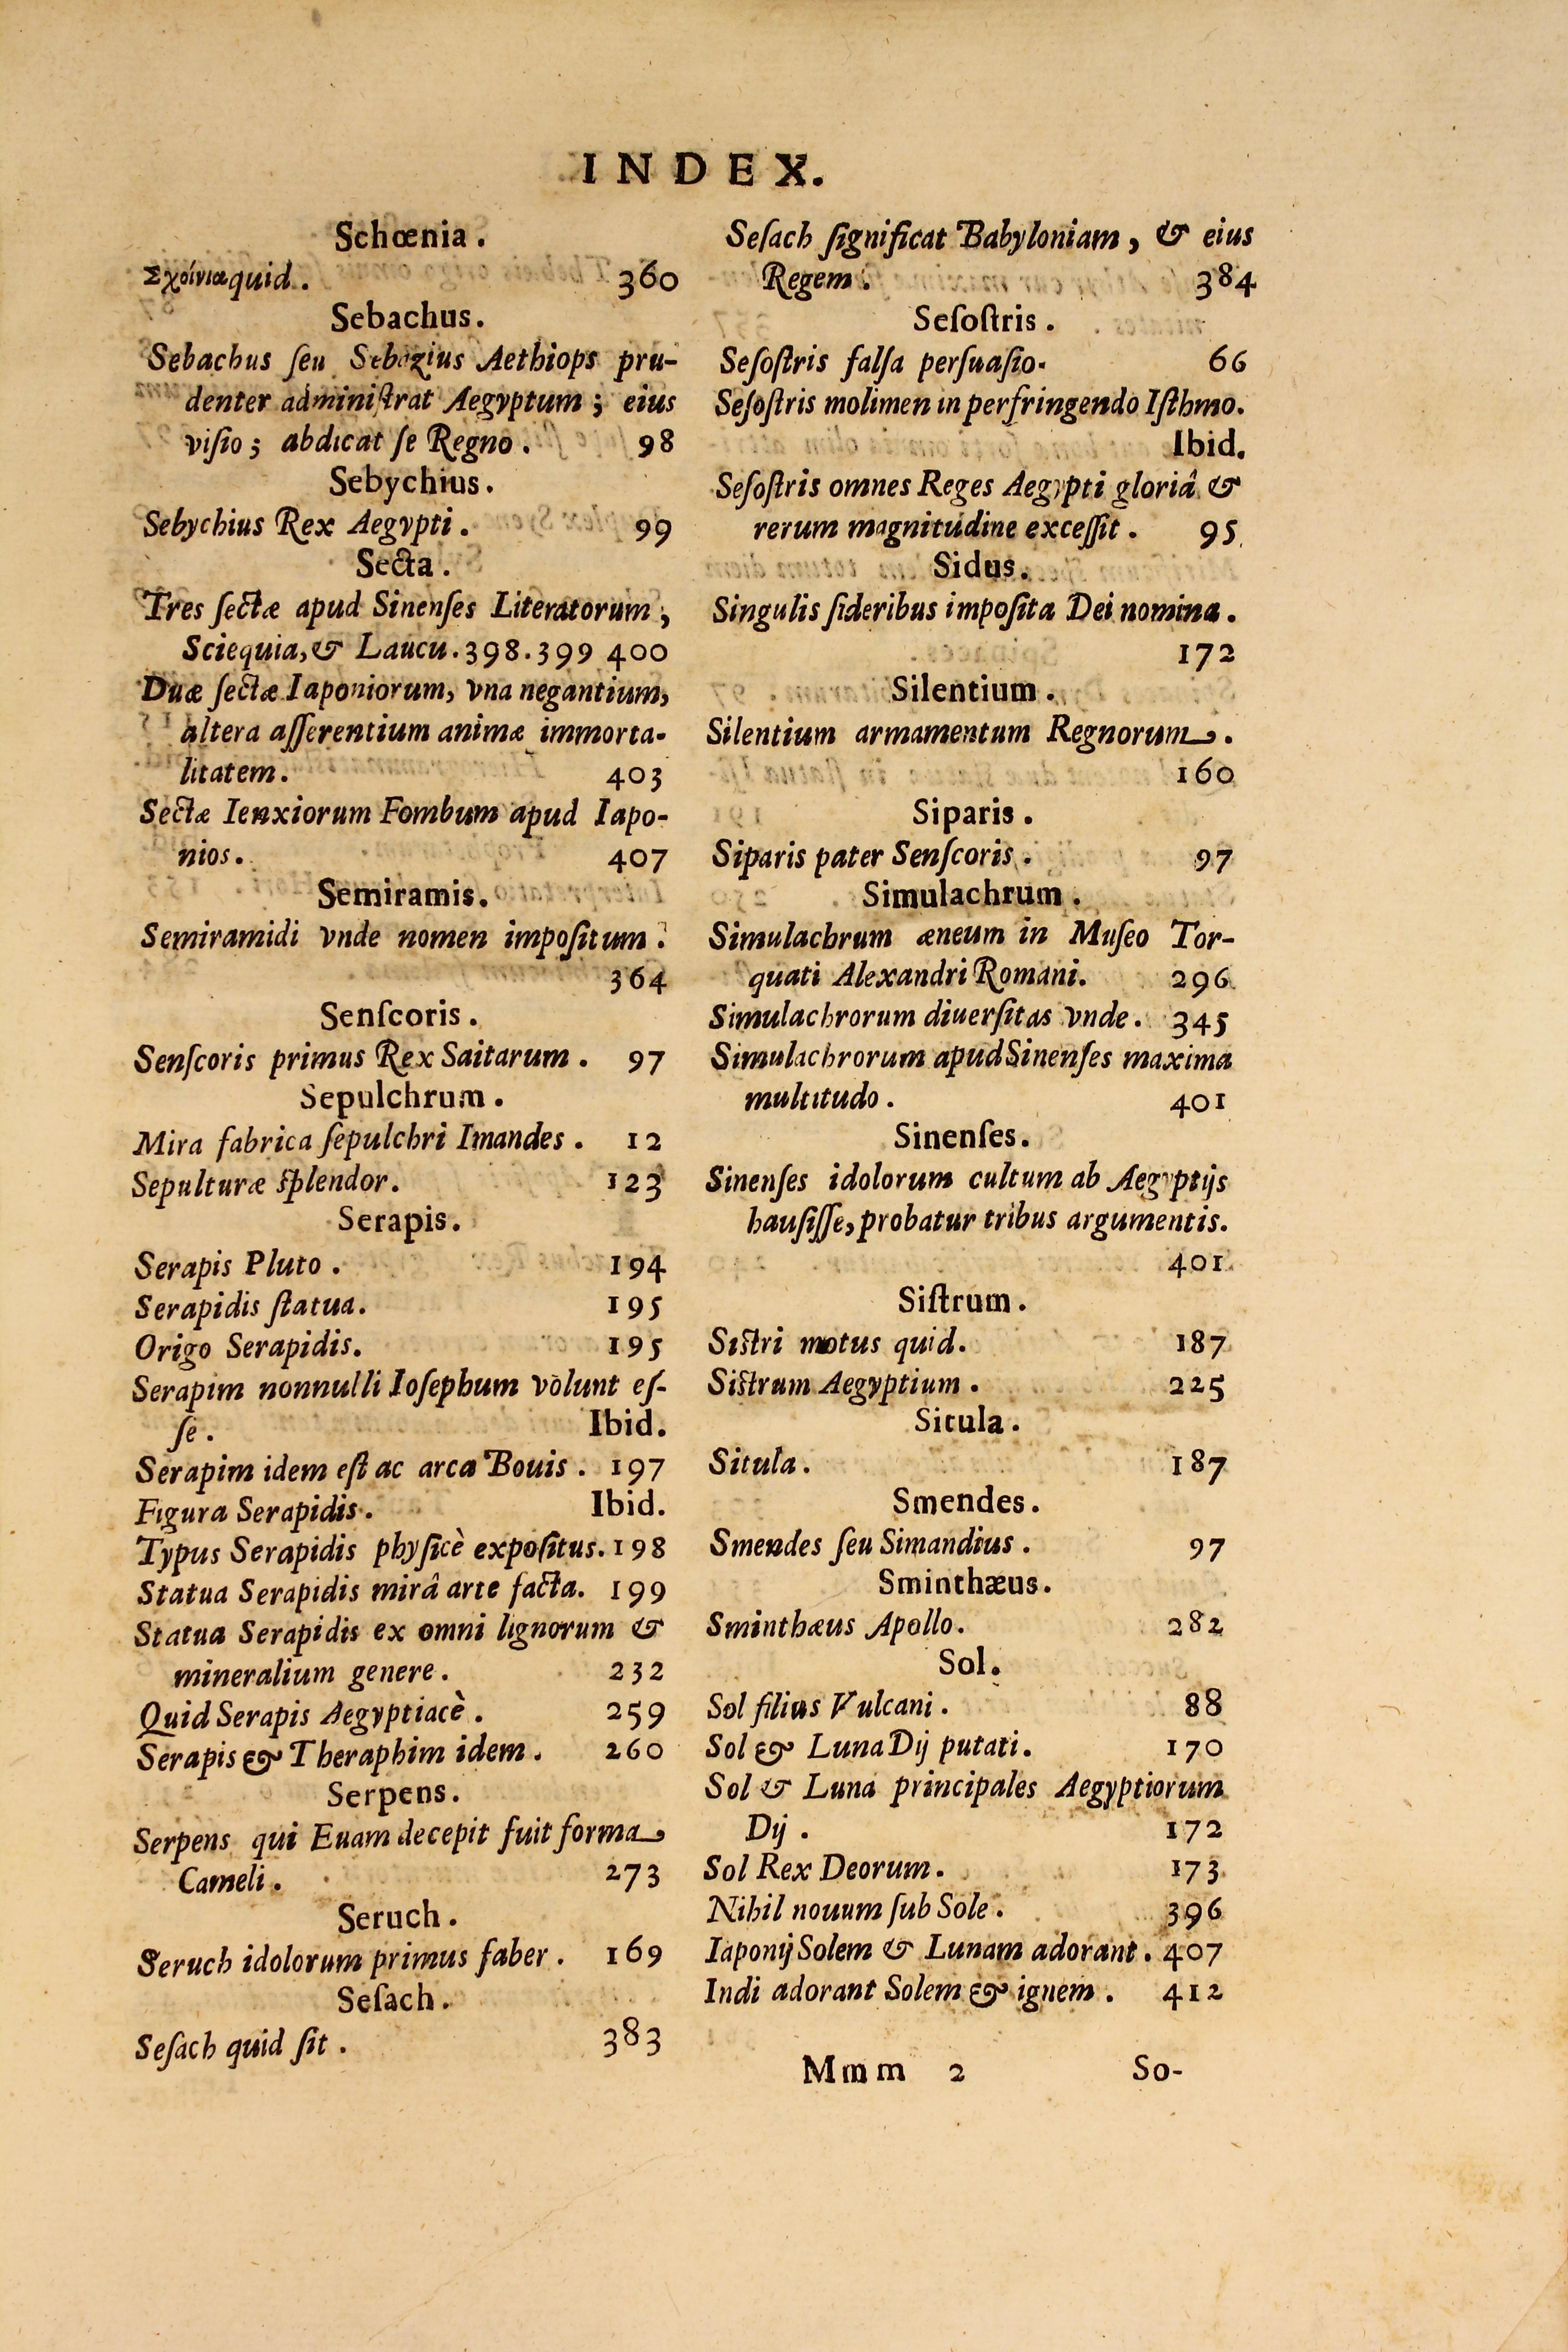 INDEX.
Schœnia.
Σχοίνια quid. 360
Sebachus.
Sebachus ſeu Sebazius Aethiops pru-
denter adminiſtrat Aegyptum; eius
viſio; abdicat ſe Regno. 98
Sebychius.
Sebychius Rex Aegypti. 99
Secta.
Tres ſectæ apud Sinenſes Literatorum,
Sciequia, & Laucu. 398. 399 400
Duæ ſectæ Iaponiorum, vna negantium,
altera aſſerentium animæ immorta-
litatem. 403
Sectæ Ienxiorum Fombum apud Iapo-
nios. 407
Semiramis.
Semiramidi vnde nomen impoſitum.
364
Senſcoris.
Senſcoris primus Rex Saitarum. 97
Sepulchrum.
Mira fabrica ſepulchri Imandes. 12
Sepulturæ ſplendor. 123
Serapis.
Serapis Pluto. 194
Serapidis ſtatua. 195
Origo Serapidis. 195
Serapim nonnulli Ioſephum volunt eſ-
ſe. Ibid.
Serapim idem eſt ac arca Bouis. 197
Figura Serapidis. Ibid.
Typus Serapidis phyſicè expoſitus. 198
Statua Serapidis mirâ arte facta. 199
Statua Serapidis ex omni lignorum &
mineralium genere. 232
Quid Serapis Aegyptiacè. 259
Serapis & Theraphim idem. 260
Serpens.
Serpens qui Euam decepit fuit forma
Cameli. 273
Seruch.
Seruch idolorum primus faber. 169
Seſach.
Seſach quid ſit. 383
Seſach ſignificat Babyloniam, & eius
Regem. 384
Seſoſtris.
Seſoſtris falſa perſuaſio. 66
Seſoſtris molimen in perfringendo Iſthmo.
Ibid.
Seſoſtris omnes Reges Aegypti gloriâ &
rerum magnitudine exceſſit. 95
Sidus.
Singulis ſideribus impoſita Dei nomina.
172
Silentium.
Silentium armamentum Regnorum.
160
Siparis.
Siparis pater Senſcoris. 97
Simulachrum.
Simulachrum æneum in Muſeo Tor-
quati Alexandri Romani. 296
Simulachrorum diuerſitas vnde. 345
Simulachrorum apud Sinenſes maxima
multitudo. 401
Sinenſes.
Sinenſes idolorum cultum ab Aegyptijs
hauſiſſe, probatur tribus argumentis.
401
Siſtrum.
Siſtri motus quid. 187
Siſtrum Aegyptium. 225
Situla.
Situla. 187
Smendes.
Smendes ſeu Simandius. 97
Sminthæus.
Sminthæus Apollo. 282
Sol.
Sol filius Vulcani. 88
Sol & Luna Dij putati. 170
Sol & Luna principales Aegyptiorum
Dij. 172
Sol Rex Deorum. 173
Nihil nouum ſub Sole. 396
Iaponij Solem & Lunam adorant. 407
Indi adorant Solem & ignem. 412
Mmm 2 So-